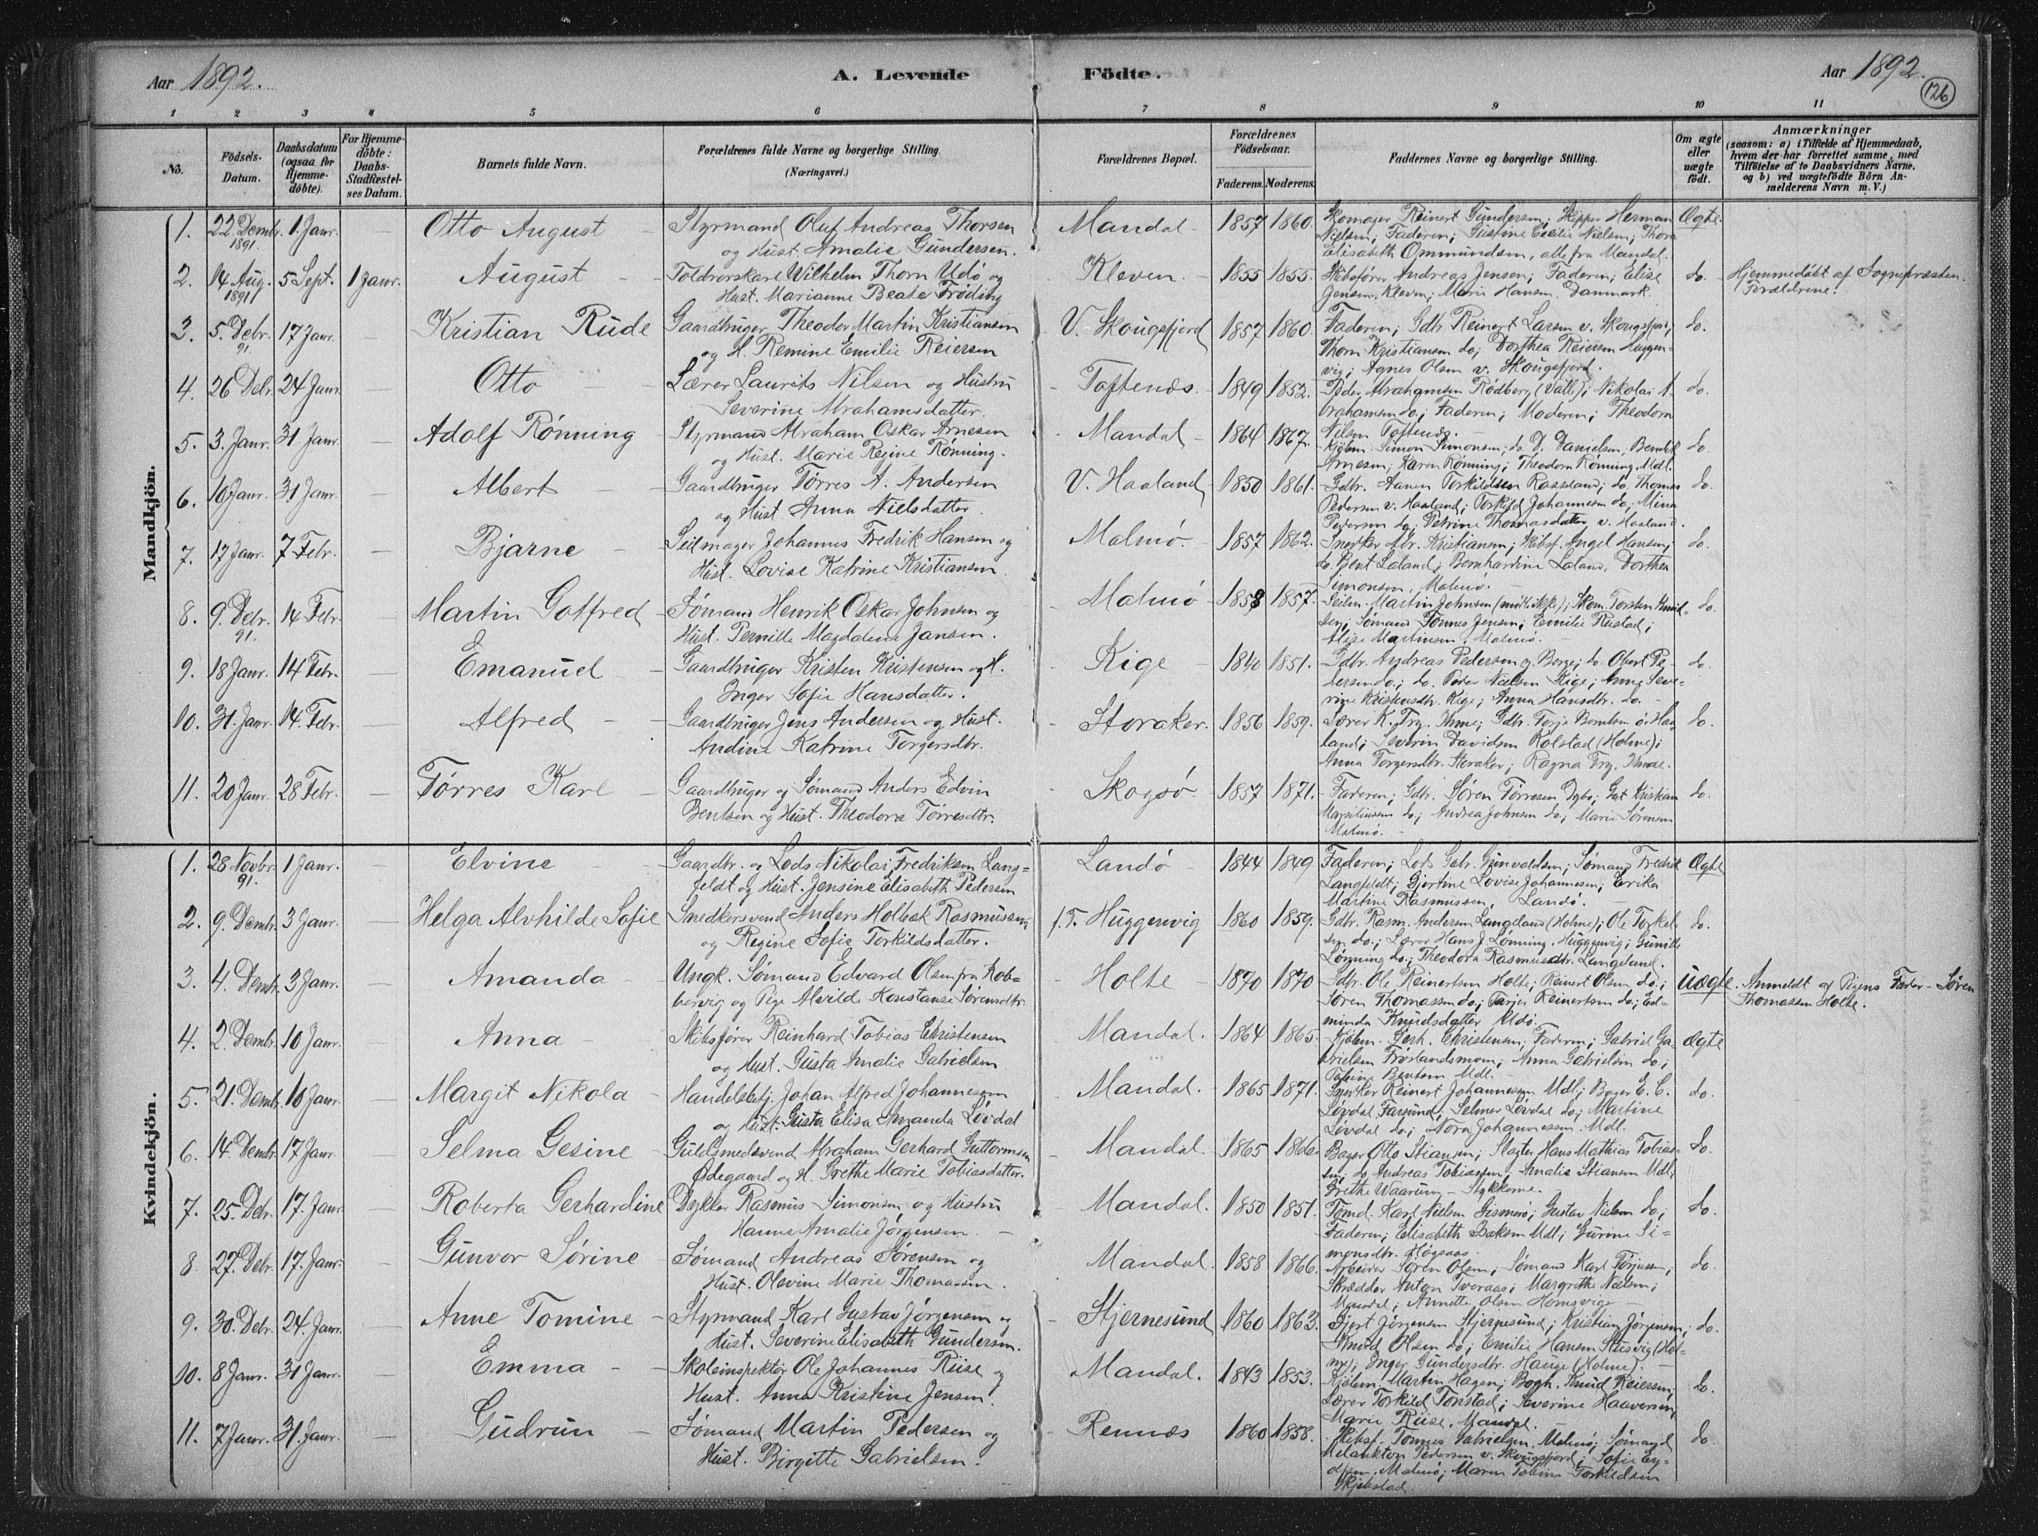 Aar 1892.
A. Levende Födte.
Aar 1892.
126
1 2 3 4 5 6 7 8 9 10 11
No.
Födsels-Datum.
Daabsdatum (ogsaa for Hjemmedöbte).
For Hjemmedöbte: Daabs-Stadfæstelses Datum.
Barnets fulde Navn.
Forældrenes fulde Navne og borgerlige Stilling. (Næringsvei.)
Forældrenes Bopæl.
Forældrenes Födselsaar.
Faderens. Moderens.
Faddernes Navne og borgerlige Stilling.
Om ægte eller uægte födt.
Anmærkninger (saasom: a) i Tilfælde af Hjemmedaab, hvem der har forrettet samme, med Tilföielse af to Daabsvidners Navne, og b) ved uægtefödte Börn Anmelderens Navn m. V.)
Mandkjön.
1. 22 Dembr. 1891. 1 Janr. Otto August Styrmand Oluf Andreas Thorsen Mandal 1857 1860. Skomager Reinert Gundersen; Skipper Herman Ægte
og Hust. Amalie Gundersen. Nielsen; Faderen; Gustine Cecilie Nielsen; Thora
Elisabeth Ommundsen, alle fra Mandal.
2. 14 Aug. 1891 5 Sept. 1 Janr. August Toldrorskarl Wilhelm Thorn Udö og Kleven 1855 1855. Skibsfører Andreas Jensen; Faderen; Elise do. Hjemmedøbt af Sognepræsten.
Hust. Marianne Beate Frøding Jensen, Kleven; Marie Hansen, Danmark. Forældrene.
3. 5. Debr. 91. 17 Janr. Kristian Rude Gaardbruger Theodor Martin Kristiansen V. Skougsfjord 1857 1860. Faderen; Gdbr. Reinert Larsen v. Skougsfjord; do.
og H. Remine Emilie Reiersen Thorn Kristiansen do; Dorthea Reiersen Huggenvig; Agnes Olsen v. Skougsfjord.
4. 26 Debr. 24 Janr. Otto Lærer Laurits Nilsen og Hustru Toftenæs. 1849 1852. Peder Abrahamsen Rødberg (Valle); Nikolai Abrahamsen do; Faderen; Moderen; Theodora do.
Severine Abrahamsdatter. Nilsen Toftenæs.
5. 3. Janr. 31 Janr. Adolf Rønning Styrmand Abraham Oskar Arnesen Mandal 1864 1867. Kjøbm. Simon Simonsen; do. D. Danielsen, Bendik do
og Hust. Marie Regine Rønning. Arnesen; Karen Rønning; Theodora Rønning, Mdl.
6. 10 Janr. 31 Janr. Albert Gaardbruger Tørres A. Andersen V. Haaland 1850 1861. Gdbr. Aanen Torkildsen Rassland; do. Thomas do.
og Hust. Anna Nielsdatter. Pedersen v. Haaland; Torkild Johannesen do; Mina
Pedersen do; Petrine Thomasdatter v. Haaland.
7. 17 Janr. 7 Febr. Bjarne Seilmager Johannes Fredrik Hansen og Malmø. 1857 1862. Snedker Abr. Kristiansen; Skibsf. Angel Hansen; do.
Hust. Lovise Katrine Kristiansen. do. Bent Laland; Bernhardine Laland, Dorthea
Simonsen, Malmø.
8. 9. Debr. 91. 14 Febr. Martin Gotfred Sømand Henrik Oskar Johnsen og Malmø 1858 1857. Seilm. Martin Johnsen; Skom. Torsten do.
Hust. Pernille Magdalene Jansen. Sømand Tønnes Jensen; Emilie Rustad;
Elise Martinsen, Malmø.
9. 18 Janr. 14 Febr. Emanuel Gaardbruger Kristen Kristensen og H. Kige 1840 1851. Gdbr. Andreas Pedersen Berge; do. Obert Pedersen do.; do. Peder Nielsen Kige; Anne Severine Kristensdtr. Kige; Anna Hansdtr. do. do.
Inger Sofie Hansdatter.
10. 31. Janr. 14. Febr. Alfred Gaardbruger Jens Andersen og Hust. Storaker. 1856 1859. Lærer K. Try. Ihme; Gdbr. Terje Berntsen ø. Haaland; Severin Davidsen Rolstad (Holme); do.
Andine Katrine Torgersdtr. Anna Torgersdtr. Storaker; Ragna Try. Ihme.
11. 20 Janr. 28 Febr. Tørres Karl Gaardbruger og Sømand Anders Edvin Skogsø. 1857 1871. Faderen; Gdbr. Søren Tørresen Dybo; Gert Kristian do.
Bentsen og Hust. Theodora Tørresdtr. Marsiliussen do; Andrea Johnsen do; Marie Sørensen
Malmø.
Kvindekjön.
1. 28 Novbr. 91. 1 Janr. Elvine Gaardbr. og Lods Nikolai Fredriksen Langfeldt og Hust. Jensine Elisabeth Pedersen Landø 1844 1849 Faderen; Lods Gabr. Gunvaldsen; Sømand Fredrik Ægte
Langfeldt; Gjertine Lovise Johannesen; Erika
Martine Rasmussen, Landø.
2. 9. Dembr. 3 Janr. Helga Alvhilde Sofie Snedkersvend Anders Holbek Rasmussen f. T. Huggenvig 1860 1859. Gdbr. Rasm. Andersen Langeland (Holme); Ole Torkelsen do.; Lærer Hans J. Lønning, Huggenvig; Gunille do.
og Regine Sofie Torkildsdatter. Lønning do; Theodora Rasmusdtr. Langeland.
3. 4. Dembr. 3 Janr. Amanda Ungk. Sømand Edvard Olsen fra Kobbervig og Pige Alvilde Konstanse Sørensdtr. Holte 1870 1870 Gdbr. Ole Reinertsen Holte; Reinert Olsen do.; uægte. Anmeldt af Pigens Fader Søren
Søren Thomassen do; Tarjer Reinertsen do; Edminda Knudsdatter Udø. Thomassen Holte.
4. 2. Dembr. 10 Janr. Anna Skibsfører Reinhard Tobias Christensen Mandal. 1864 1865. Kjøbm. Gerh. Christensen; Faderen; Gabriel Gabrielsen Frøslandsmoen; Anna Gabrielsen do; Ægte
og Hust. Gusta Amalie Gabrielsen Tobine Bentsen Mdl.
5. 21. Dembr. 10 Janr. Margit Nikola Handelsbtj. Johan Alfred Johannesen Mandal. 1865 1871. Snedker Reinert Johannesen Mdl; Bager E. C. do.
og Hust. Gusta Elisa Amanda Løvdal Løvdal Farsund; Selmer Løvdal do; Martine
Løvdal do; Nora Johannesen Mdl.
6. 14 Dembr. 17 Janr. Selma Gesine Guldsmedsvend Abraham Gerhard Guttormsen Mandal. 1865 1866. Bager Otto Stiansen; Slagter Hans Mathias Tobiassen; do. Andreas Tobiassen; Amalie Stiansen Mdl; do.
Ødegaard og H. Grethe Marie Tobiasdatter. Grethe Waarum
7. 25. Debr. 17. Janr. Roberta Gerhardine Dykker Rasmus Simonsen og Hustru Mandal. 1850 1851. Tømd. Karl Nielsen Gismerø; Gustav Nielsen do; do.
Hanne Amalie Jørgensen. Faderen; Elisabeth Baksen Mdl; Gurine Simensdtr. Høgsaas.
8. 27. Debr. 17. Janr. Gunvor Sørine Sømand Andreas Sørensen og Mandal. 1858 1866. Arbeider Søren Olsen; Sømand Karl Torjusen; do.
Hust. Olevine Marie Thomassen. Skrædder Anton Tveraas; Margrethe Nielsen;
Mandal; Annette Olsen Homsvige
9. 30. Debr. 24. Janr. Anne Tomine Styrmand Karl Gustav Jørgensen og Stjernesund 1860 1863. Gjert Jørgensen Stjernesund; Kristian Jørgensen; do.
Hust. Severine Elisabeth Gundersen. Knud Olsen do; Emilie Hansen Stusvig (Holme); Inger Gundersdtr. Hauge (Holme).
10. 8 Janr. 31 Janr. Emma Skoleinspektør Ole Johannes Riise og Mandal. 1843 1853. Kjøbm. Martin Hagen; Bogh. Knud Reiersen; do.
Hust. Anna Kristine Jensen. Lærer Torkild Tonstad; Severine Haaversen,
Marie Riise, Mandal.
11. 7 Janr. 31 Janr. Gudrun Sømand Martin Pedersen og Rennæs 1860 1858. Skibsf. Tønnes Gabrielsen, Malmø; Sømand do
Hust. Birgitte Gabrielsen. Melankton Pedersen v. Skougsfjord; Sofie
Malmø; Maren Tobine Torkildsen
Skjebstad.